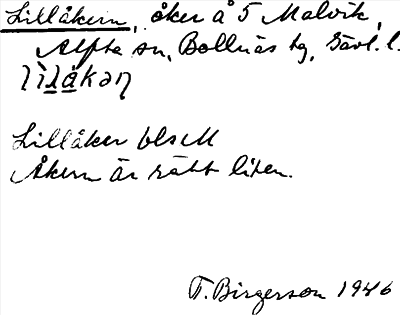 Lillåkern, åker å 5 Malvik,
Alfta sn, Bollnäs tg, Gävl. l.
Lillåker blsM
Åkern är rätt liten.
T. Birgerson 1946